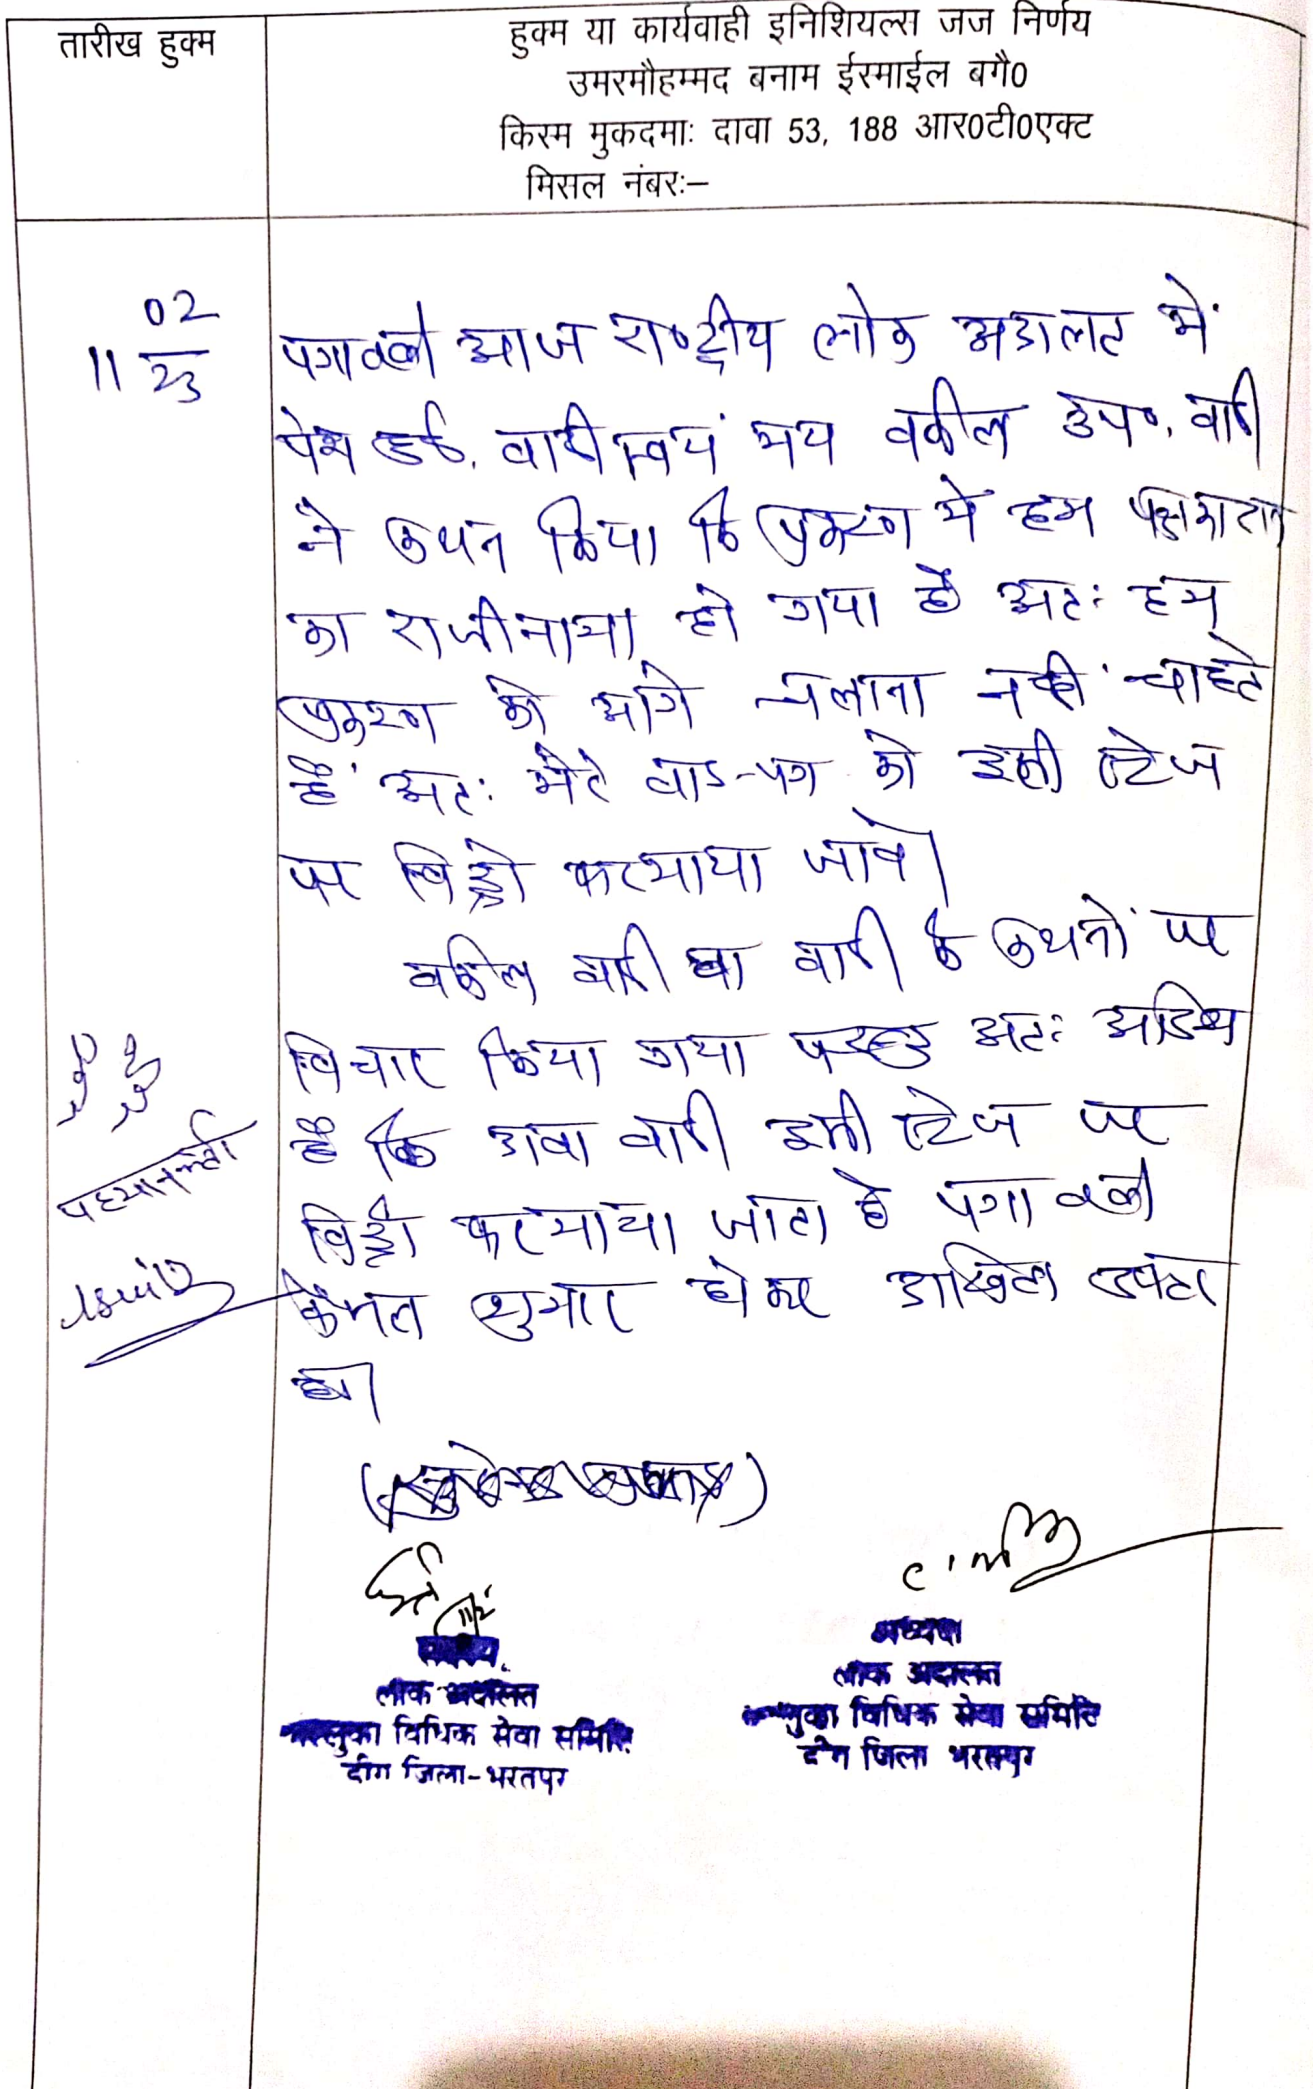 तारीख हुक्म
हुक्म या कार्यवाही इनिशियल्स जज निर्णय
उमरमौहम्मद बनाम ईस्माईल बगै0
किस्म मुकदमाः दावा 53, 188 आर0टी0एक्ट
मिसल नंबरः–
02
11 23
पत्रावली आज राष्ट्रीय लोक अदालत में
पेश हुई. वादी स्वयं मय वकील उप०. वादी
ने कथन किया कि प्रकरण में हम पक्षकारान
का राजीनामा हो गया है अतः हम
प्रकरण को आगे चलाना नहीं चाहते
हैं अतः मेरे वाद-पत्र को इसी स्टेज
पर विड्रो करमाया जावे।
वकील वादी वा वादी के कथनों पर
विचार किया गया अतः आदेश
है कि दावा वादी इसी स्टेज पर
विड्रो करमाया जाता है पत्रावली
फैसल शुमार होकर दाखिल दफ्तर
हो।
लोक अदालत
ताल्लुका विधिक सेवा समिति
डीग जिला-भरतपुर
अध्यक्ष
लोक अदालत
ताल्लुका विधिक सेवा समिति
डीग जिला भरतपुर